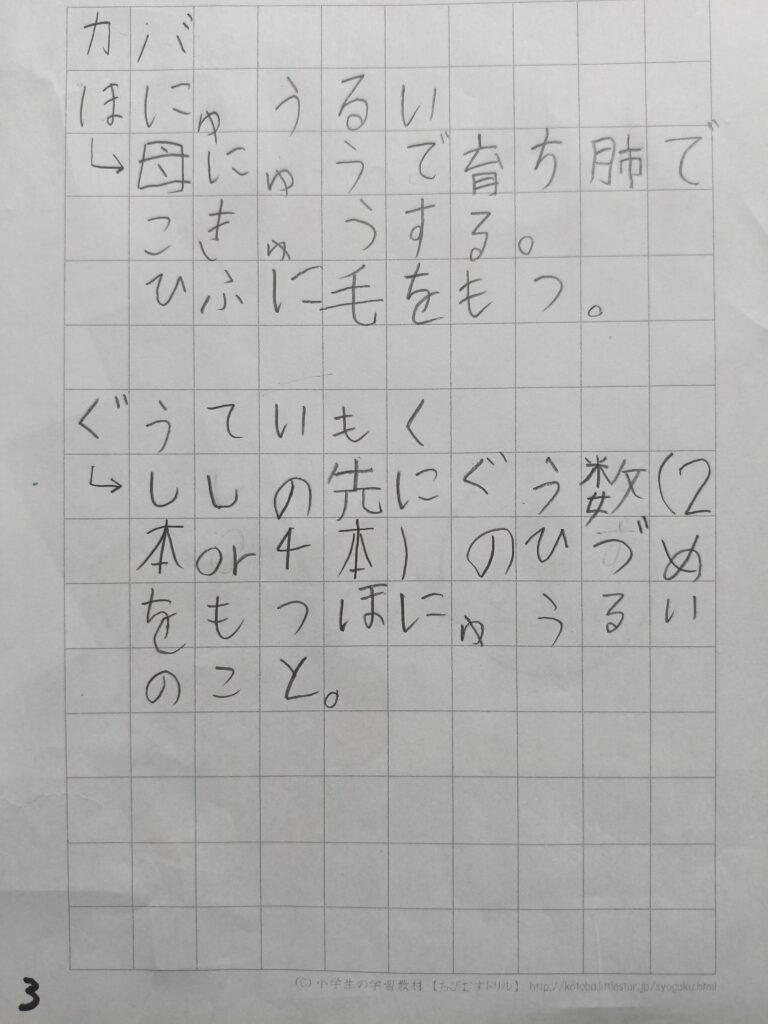 カバ
ほにゅうるい
↳母にゅうで育ち肺で
こきゅうする。
ひふに毛をもつ。
ぐうていもく
↳ししの先にぐう数(2
本or4本)のひづめ
をもつほにゅうるい
のこと。
(C) 小学生の学習教材 【ちびむすドリル】 http://kotoba.littlestar.jp/syogaku.html
3